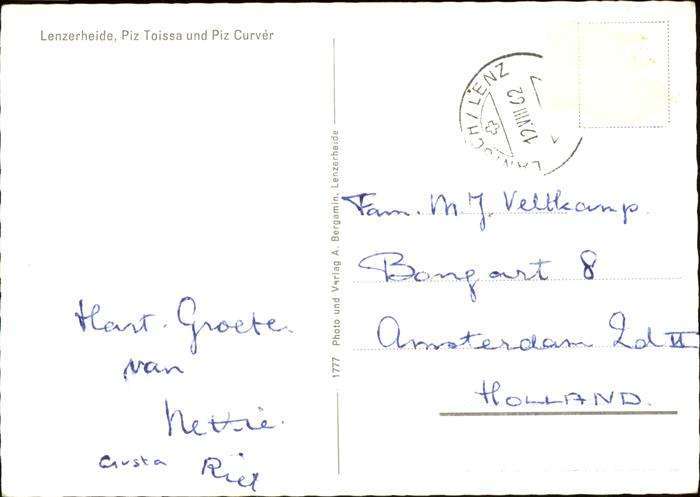 Lenzerheide, Piz Toissa und Piz Curvér
LANTSCH/LENZ
12.VIII.62
1777 Photo und Verlag A. Bergamin, Lenzerheide
Hart. Groete.
van
Nettie.
Gusta Riet
Fam. M J. Veltkamp.
Bongart 8
Amsterdam Zd II
HOLLAND.